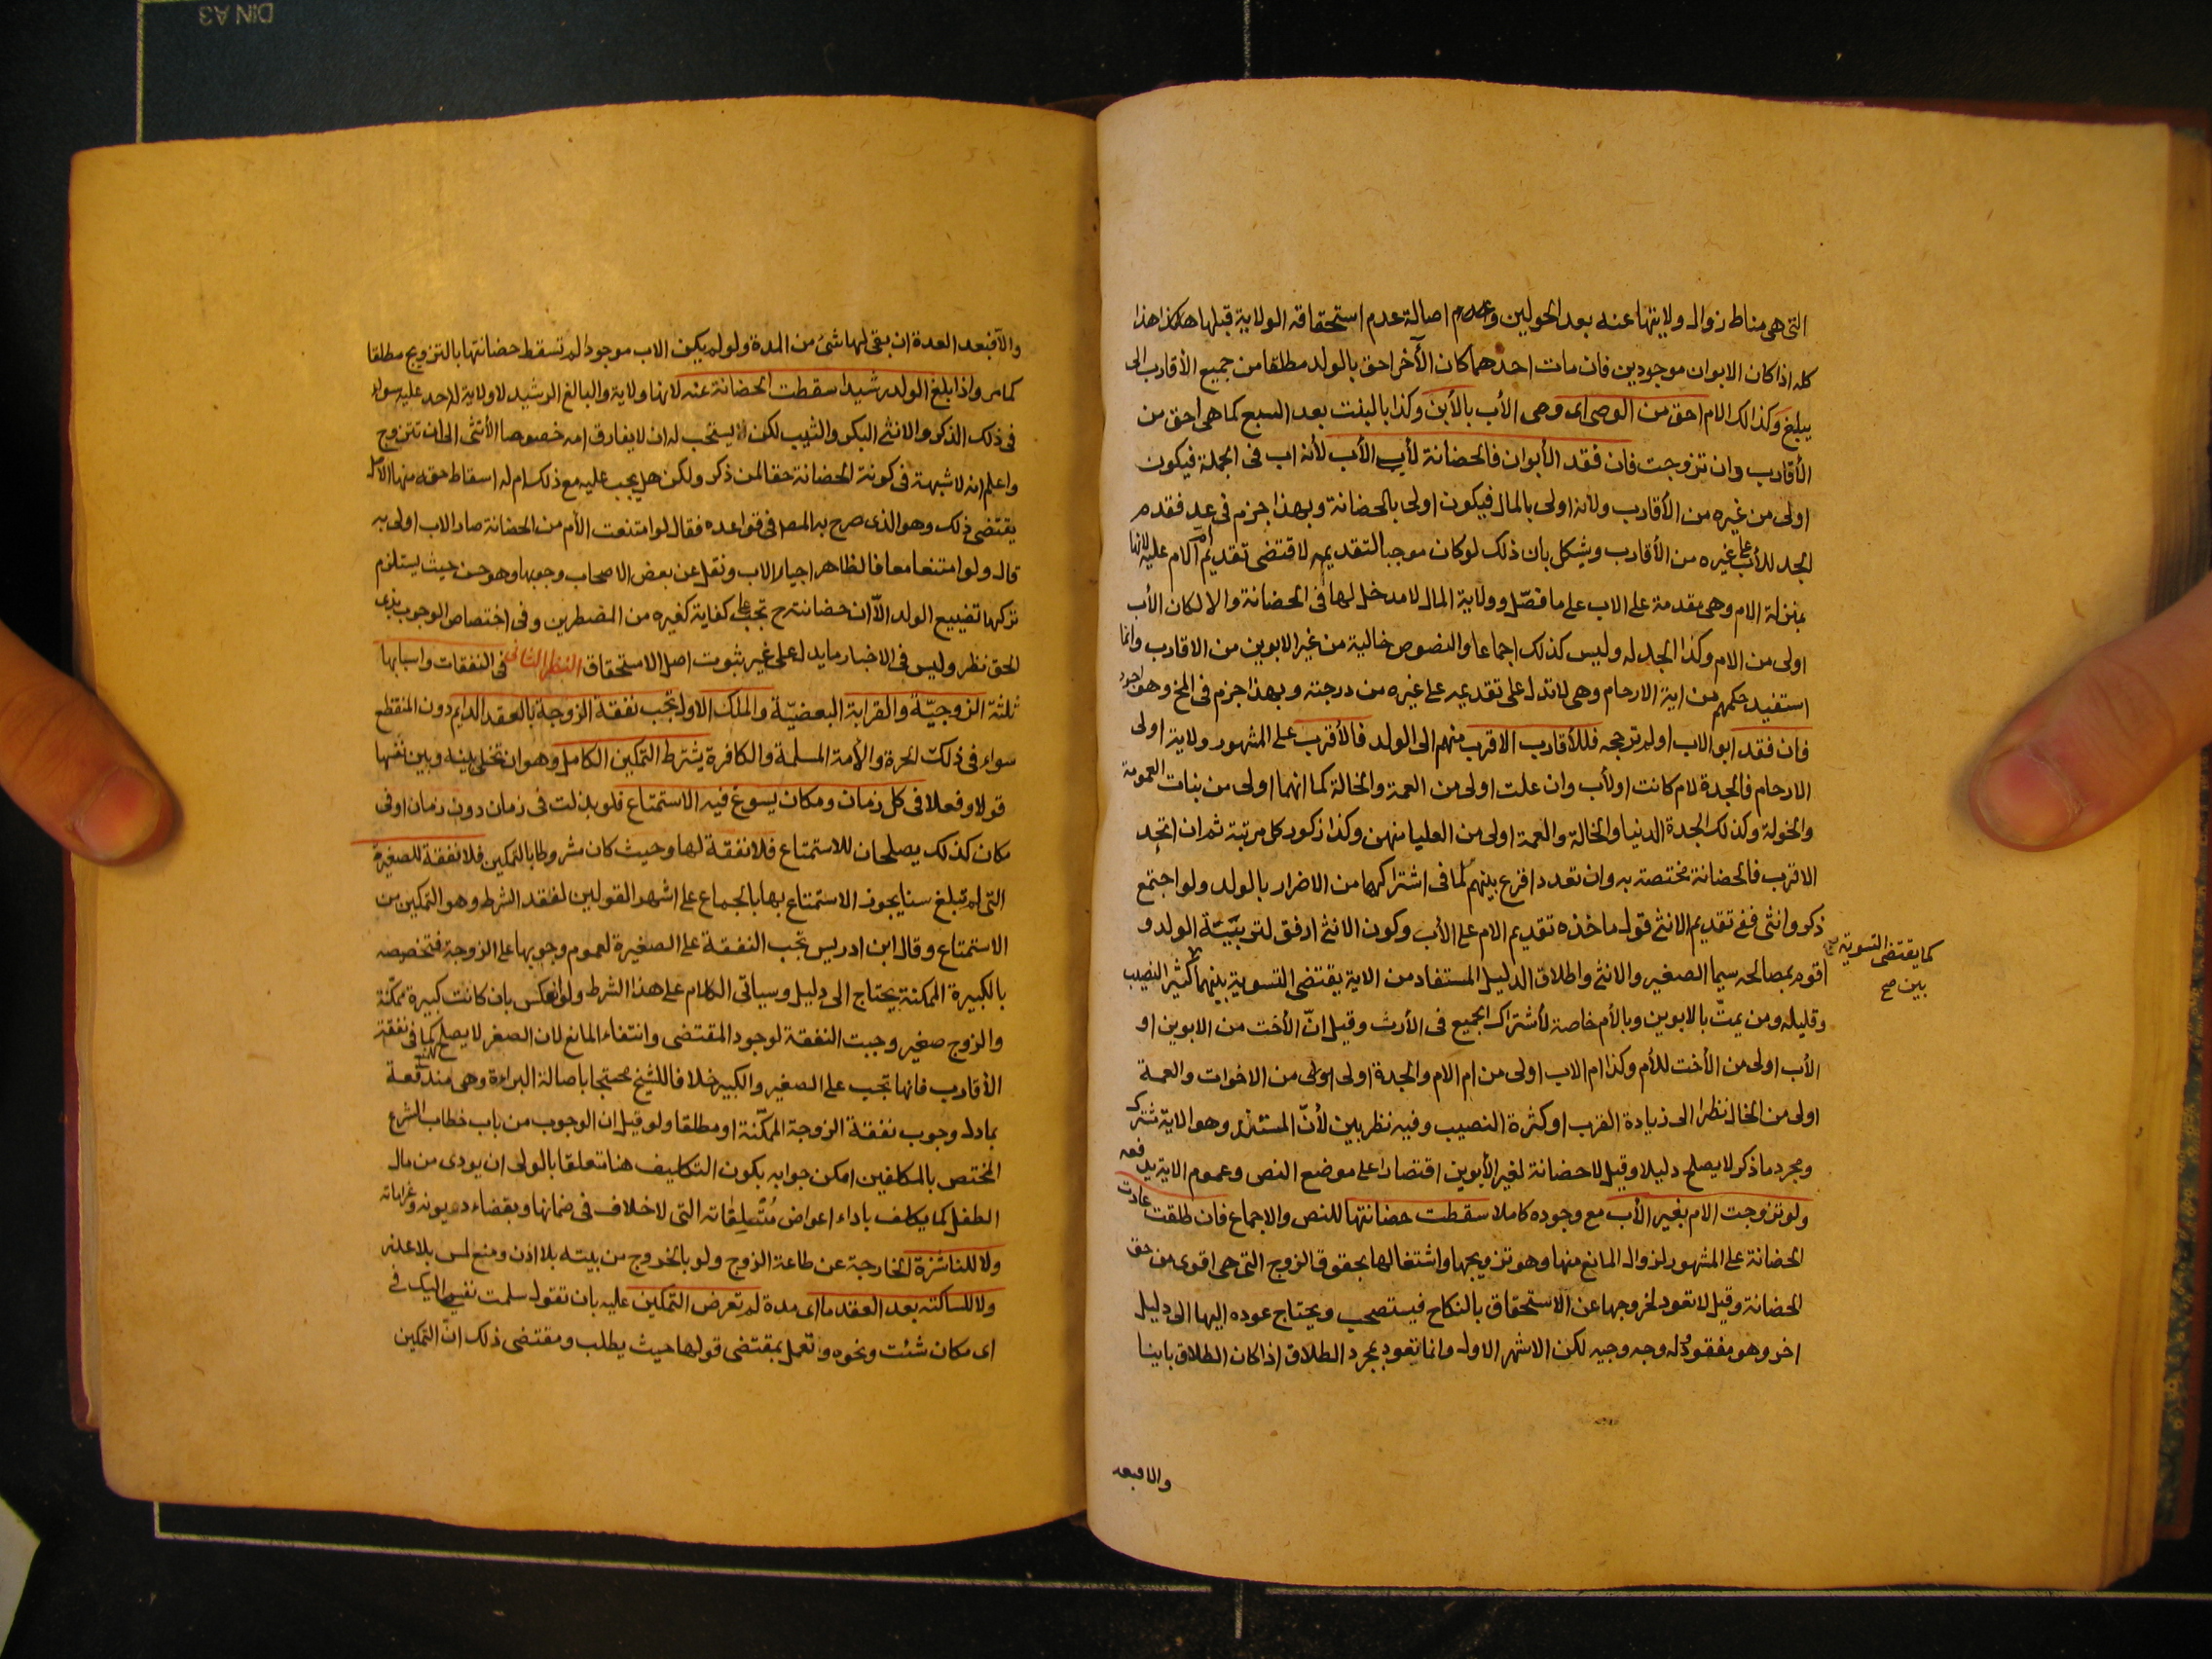 التى هى مناط زوال ولايتها عنه بعد الحولين وعدم اصالة عدم استحقاقه الولاية قبلها هكذا هذا
كله اذا كان الابوان موجودين فان مات احدهما كان الآخر احق بالولد مطلقا من جميع الأقارب الى ان
يبلغ وكذلك الام احق من الوصى اى وصى الأب بالأبن وكذا بالبنت بعد السبع كما هى احق من
الأقارب وان تزوجت فان فقد الأبوان فالحضانة لأبى الأب لأنه اب فى الجملة فيكون
اولى من غيره من الأقارب ولانه اولى بالمال فيكون اولى بالحضانة وبهذا جزم فى عد فقدم
الجد للأب على غيره من الأقارب ويشكل بان ذلك لو كان موجبا لتقديمه لاقتضى تقديم ام الام عليه لانها
بمنزلة الام وهى مقدمة على الاب على ما فصّل وولاية المال لا مدخل لها فى الحضانة والا لكان الأب
اولى من الام وكذا الجد له وليس كذلك اجماعا والنصوص خالية من غير الابوين من الاقارب وانما
استفيد حكمهم من اية الارحام وهى لا تدل على تقديمه على غيره من درجته وبهذا جزم فى المخ وهو اجود
فان فقد ابو الاب او لم ترجحه فللأقارب الاقرب منهم الى الولد فالأقرب على المشهور ولاية اولى
الارحام فالجدة لام كانت او لأب وان علت اولى من العمة والخالة كما انهما اولى من بنات العمومة
والخولة وكذلك الجدة الدنيا والخالة والعمة اولى من العليا منهن وكذا ذكور كل مرتبة ثم ان اتحد
الاقرب فالحضانة مختصة به وان تعدد اقرع بينهم لما فى اشتراكها من الاضرار بالولد ولو اجتمع
ذكر وانثى ففى تقديم الانثى قول ماخذه تقديم الام على الأب وكون الانثى ارفق لتربيتة الولد و
اقوم بمصالحه سيما الصغير والانثى واطلاق الدليل المستفاد من الاية يقتضى التسوية بينهما كثير النصيب
كما يقتضى التسوية
بين صح
وقليله ومن يمتّ بالابوين وبالأم خاصة لأشتراك الجميع فى الأرث وقيل انّ الأخت من الابوين او
الأب اولى من الأخت للأم وكذا ام الاب اولى من ام الام والجدة اولى من الاخوات والعمة
اولى من الخالة نظرا الى زيادة القرب او كثرة النصيب وفيه نظر بين لأنّ المستند وهو الاية مشترك
ومجرد ما ذكر لا يصلح دليلا وقيل لا حضانة لغير الأبوين اقتصارا على موضع النص وعموم الاية يدفعه
ولو تزوجت الام بغير الأب مع وجوده كاملا سقطت حضانتها للنص والاجماع فان طلقت عادت
الحضانة على المشهور لزوال المانع منها وهو تزويجها واشتغالها بحقوق الزوج التى هى اقوى من حق
الحضانة وقيل لا تعود لخروجها عن الاستحقاق بالنكاح فيستصحب ويحتاج عوده اليها الى دليل
اخر وهو مفقود وله وجه وجيه لكن الاشهر الاول وانما تعود بمجرد الطلاق اذا كان الطلاق باينا
والا فبعد
والا فبعد العدة ان بقى لها شئ من المدة ولو لم يكن الاب موجودا لم تسقط حضانتها بالتزويج مطلقا
كما مر واذا بلغ الولد رشيدا سقطت الحضانة عنه لانها ولاية والبالغ الرشيد لا ولاية لاحد عليه سواء
فى ذلك الذكر والانثى البكر والثيب لكن يستحب له ان لا يفارق امه خصوصا الأنثى الى ان تتزوج
واعلم انه لا شبهة فى كونه الحضانة حقا لمن ذكر ولكن هل يجب عليه مع ذلك ام له اسقاط حقه منها الاصل
يقتضى ذلك وهو الذى صرح به المص فى قواعده فقال لو امتنعت الأم من الحضانة صار الاب اولى به
قال ولو امتنعا معا فالظاهر اجبار الاب ونقل عن بعض الاصحاب وجوبها وهو حسن حيث يستلزم
تركها تضييع الولد الّا ان حضانته ح تجب على كفاية كغيره من المضطرين وفى اختصاص الوجوب بذى
الحق نظر وليس فى الاخبار ما يدل على غير ثبوت اصل الاستحقاق النظر الثانى فى النفقات واسبابها
ثلثة الزوجيّة والقرابة البعضيّة والملك الاول تجب نفقة الزوجة بالعقد الدايم دون المنقطع
سواء فى ذلك الحرة والأمة المسلمة والكافرة بشرط التمكين الكامل وهو ان تخلى بينه وبين نفسها
قولا وفعلا فى كل زمان ومكان يسوغ فيه الاستمتاع فلو بذلت فى زمان دون زمان او فى
مكان كذلك يصلحان للاستمتاع فلا نفقة لها وحيث كان مشروطا بالتمكين فلا نفقة للصغيرة
التى لم تبلغ سنا يجوز الاستمتاع بها بالجماع على اشهر القولين لفقد الشرط وهو التمكين من
الاستمتاع وقال ابن ادريس تجب النفقة على الصغيرة لعموم وجوبها على الزوجة فتخصيصه
بالكبيرة الممكنة يحتاج الى دليل وسياتى الكلام على هذا الشرط ولو انعكس بان كانت كبيرة ممكّنة
والزوج صغير وجبت النفقة لوجود المقتضى وانتفاء المانع لان الصغر لا يصلح كما فى نفقة
الأقارب فانها تجب على الصغير والكبير خلافا للشيخ محتجا باصالة البراءة وهى مندفعة
بما دل وجوب نفقة الزوجة الممكّنة او مطلقا ولو قيل ان الوجوب من باب خطاب الشرع
المختص بالمكلفين امكن جوابه بكون التكليف هنا متعلقا بالولى ان يودى من مال
الطفل كما يكلف باداء اعواض مُتلِفاته التى لا خلاف فى ضمانها وبقضاء ديونه وغراماته
ولا للناشزة الخارجة عن طاعة الزوج ولو بالخروج من بيته بلا اذن ومنع لمس بلا عذر
ولا للساكتة بعد العقد ما اى مدة لم تعرض التمكين عليه بان تقول سلمت نفسى اليك فى
اى مكان شئت ونحوه وتعمل بمقتضى قولها حيث يطلب ومقتضى ذلك انّ التمكين